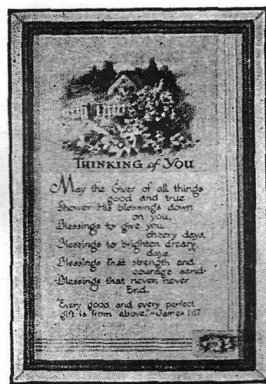 THINKING of YOU
May the Giver of all things
good and true
Shower His blessings down
on you,
Blessings to give you
cheery days,
Blessings to brighten dreary
days
Blessings that strength and
courage send-
Blessings that never, never
End.
"Every good and every perfect
gift is from above."-James 1:17